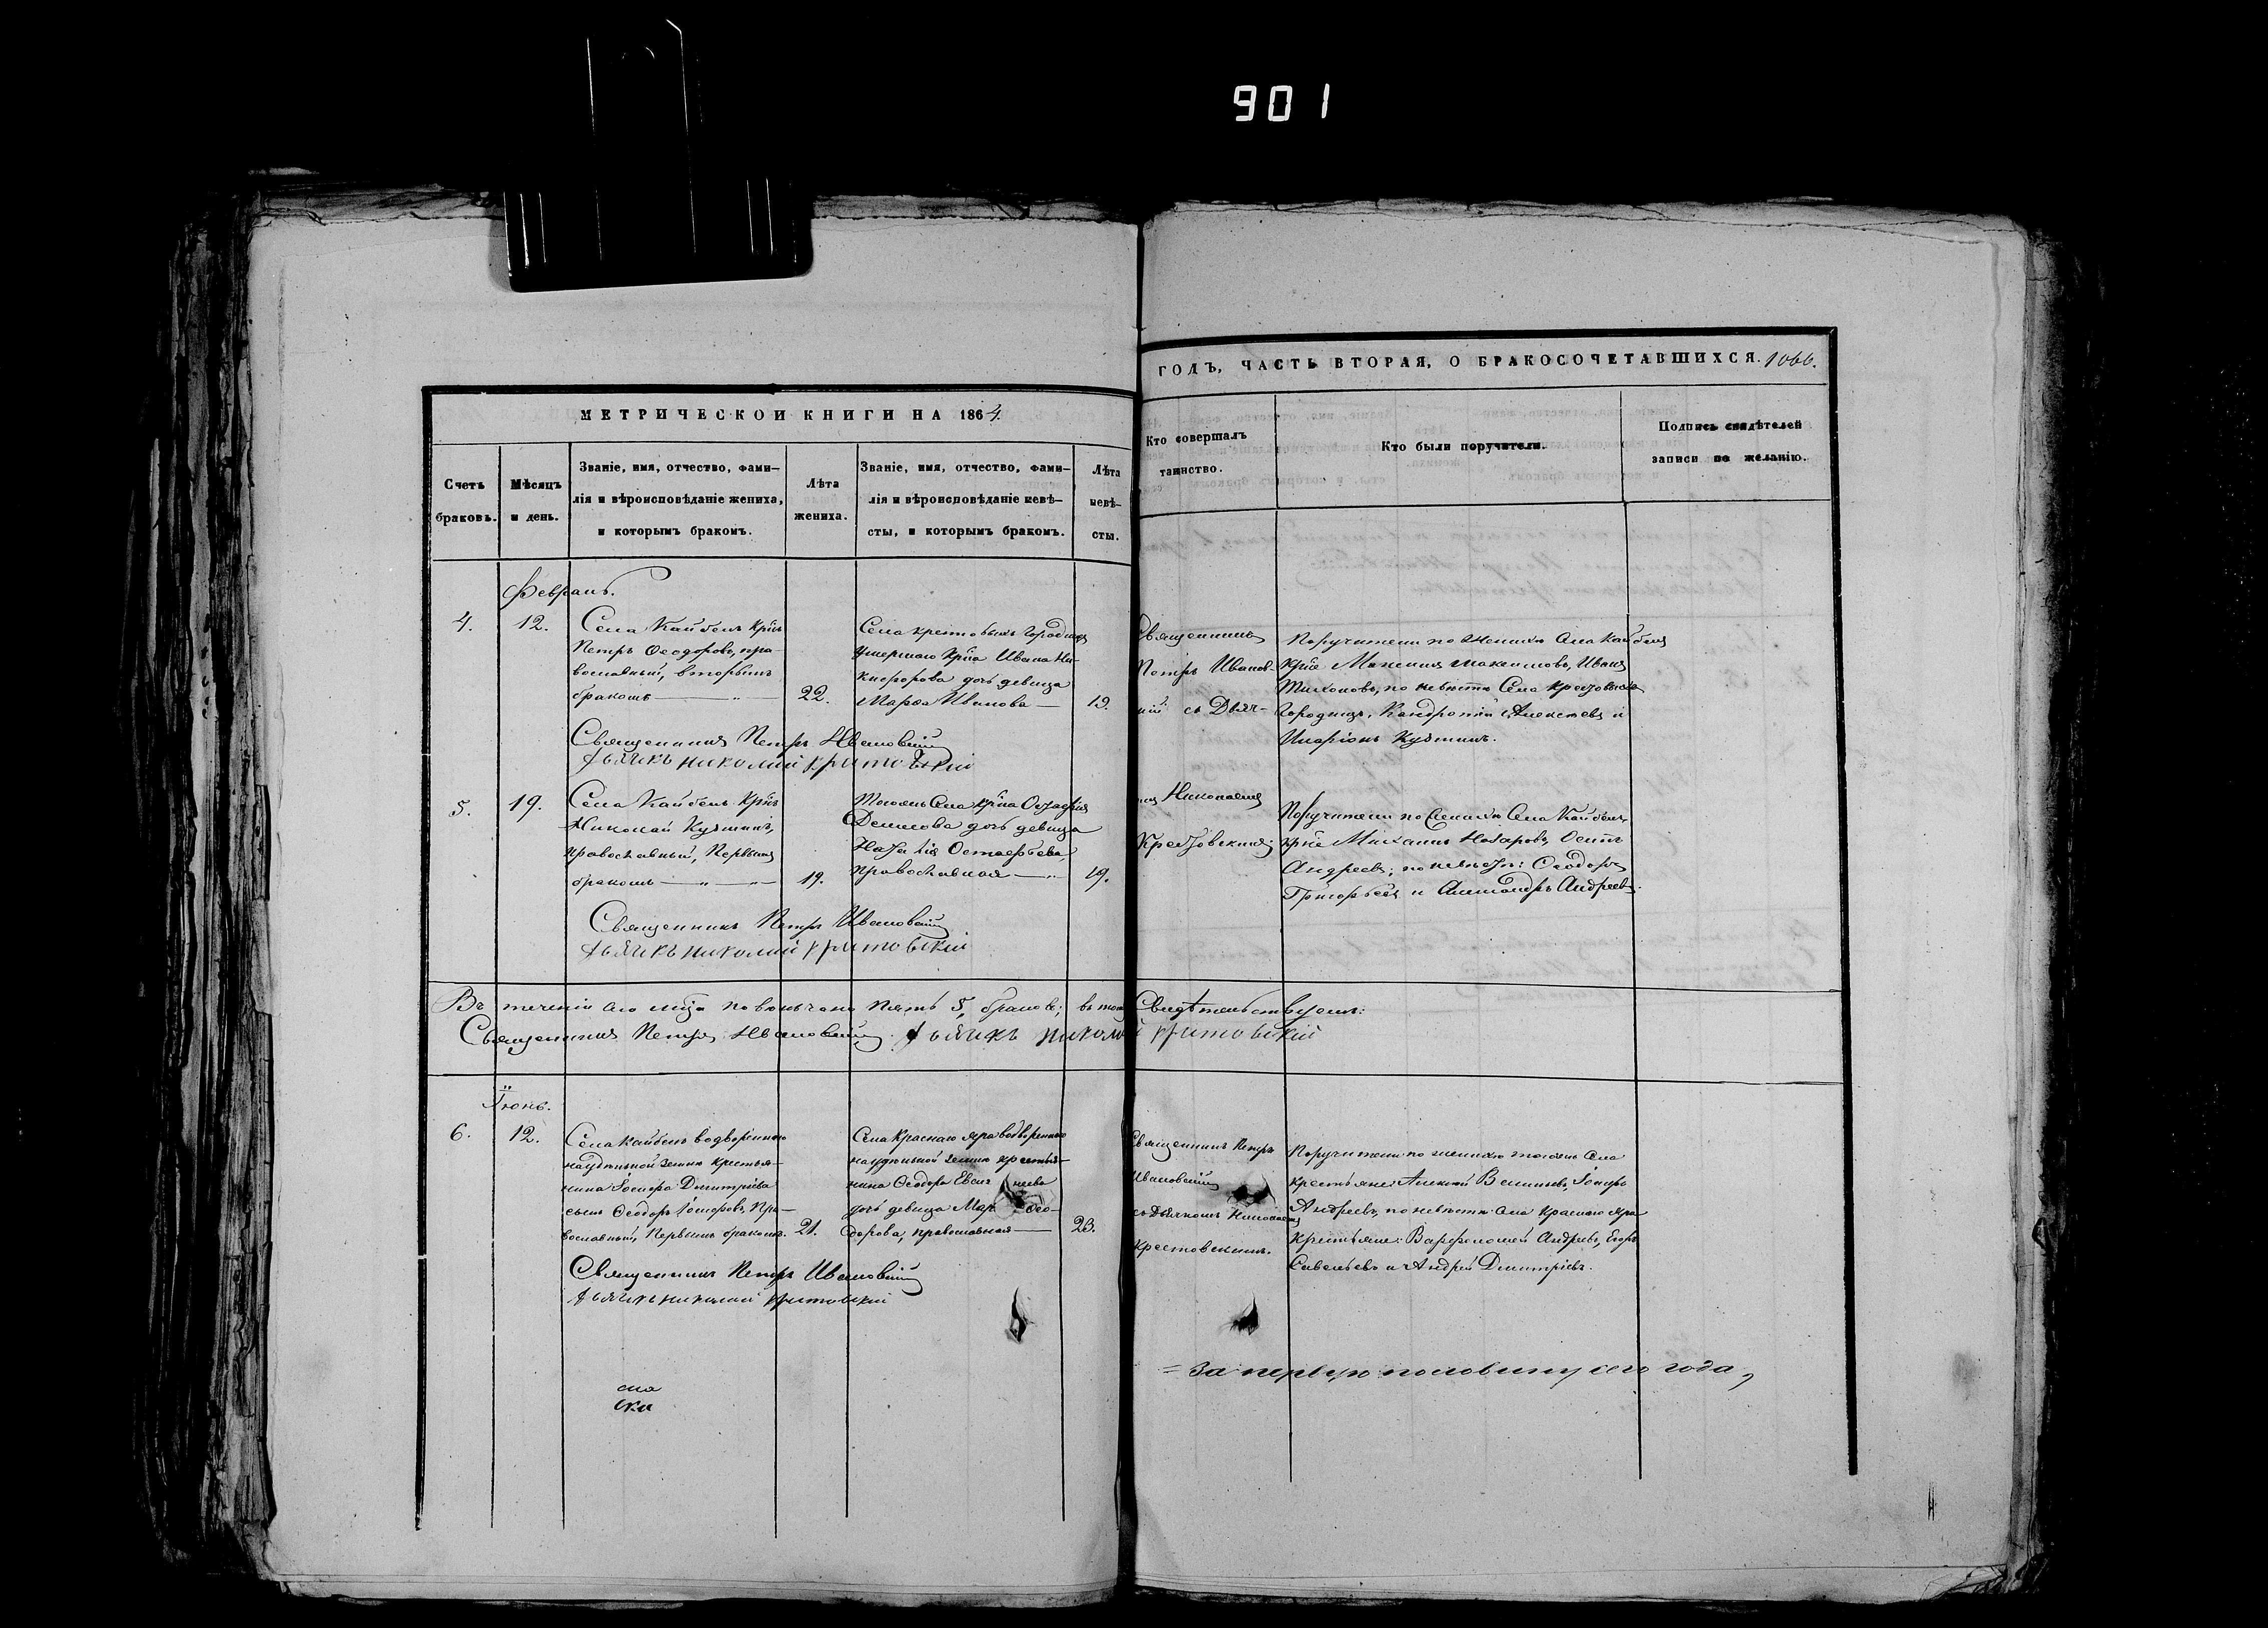 901
МЕТРИЧЕСКОЙ КНИГИ НА 1864
ГОДЪ, ЧАСТЬ ВТОРАЯ, О БРАКОСОЧЕТАВШИХСЯ. 1066.
Счетъ
браковъ.
Мѣсяцъ
и день.
Званіе, имя, отчество, фами-
лія и вѣроисповѣданіе жениха,
и которымъ бракомъ.
Лѣта
жениха.
Званіе, имя, отчество, фами-
лія и вѣроисповѣданіе невѣ-
сты, и которымъ бракомъ.
Лѣта
невѣ-
сты.
Кто совершалъ
таинство.
Кто были поручители.
Подпись свидѣтелей
записи по желанію.
Февраль.
4.
12.
Села Кайбелъ
Петръ Ѳеодоровъ, пра
вославный, вторымъ
бракомъ
22.
Села Крестовыхъ Городищъ
умершаго Ивана Ни-
кифорова дочь девица
Марѳа Иванова
19.
Священникъ
Петръ Иванов-
скій съ Дьяч-
Поручители по женихѣ Села Кайбелъ
Максимъ Максимовъ, Иванъ
Тихоновъ, по невѣстѣ Села Крестовыхъ
Городищъ, Кондратій Алексѣевъ и
Иларіонъ Кузминъ.
Священникъ Петръ Ивановскій
Дьячекъ Николай Крестовскій
5.
19.
Села Кайбелъ
Николай Кузминъ,
православный, первымъ
бракомъ
19.
Тогожъ Села
Денисова дочь девица
Наталія Остафьева
православная
19.
Николаемъ
Крестовскимъ.
Поручители по женихѣ Села Кайбелъ
Михаилъ Назаровъ, Осипъ
Андреевъ; по невѣстѣ: Ѳеодоръ
Григорьевъ и Александръ Андреевъ.
Священникъ Петръ Ивановскій
Дьячекъ Николай Крестовскій
Въ теченіи сего повѣнчано пять 5, браковъ; въ томъ Свидѣтельствуемъ:
Священникъ Петръ Ивановскій Дьячекъ Николай Крестовскій
Іюнь.
6.
12.
Села Кайбелъ водвореннаго
на удѣльной землѣ крестья-
нина Дмитріева
сынъ Ѳеодоръ Пра-
вославный, первымъ бракомъ.
21.
Села Краснаго яра водвореннаго
на удѣльной землѣ крестья-
нина Ѳеодора
дочь девица Ѳео-
дорова, православная
23.
Священникъ Петръ
Ивановскій
съ Дьячкомъ Николаемъ
Крестовскимъ.
Поручители по женихѣ тогожъ Села
крестьяне: Алексѣй
Андреевъ, по невѣстѣ Села Краснаго яра
крестьяне: Варфоломей Андреевъ, Егоръ
Савельевъ и Андрей Дмитріевъ.
Священникъ Петръ Ивановскій
Дьячекъ Николай Крестовскій
= За первую половину сего года,